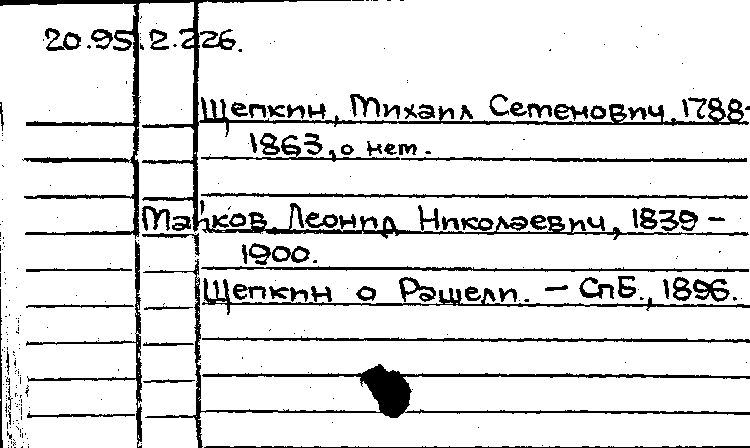 20.95.2.226.
Щепкин, Михаил Семенович, 1788-
1863, о нем.
Майков, Леонид Николаевич, 1839 -
1900.
Щепкин о Рашели. - СПБ., 1896.